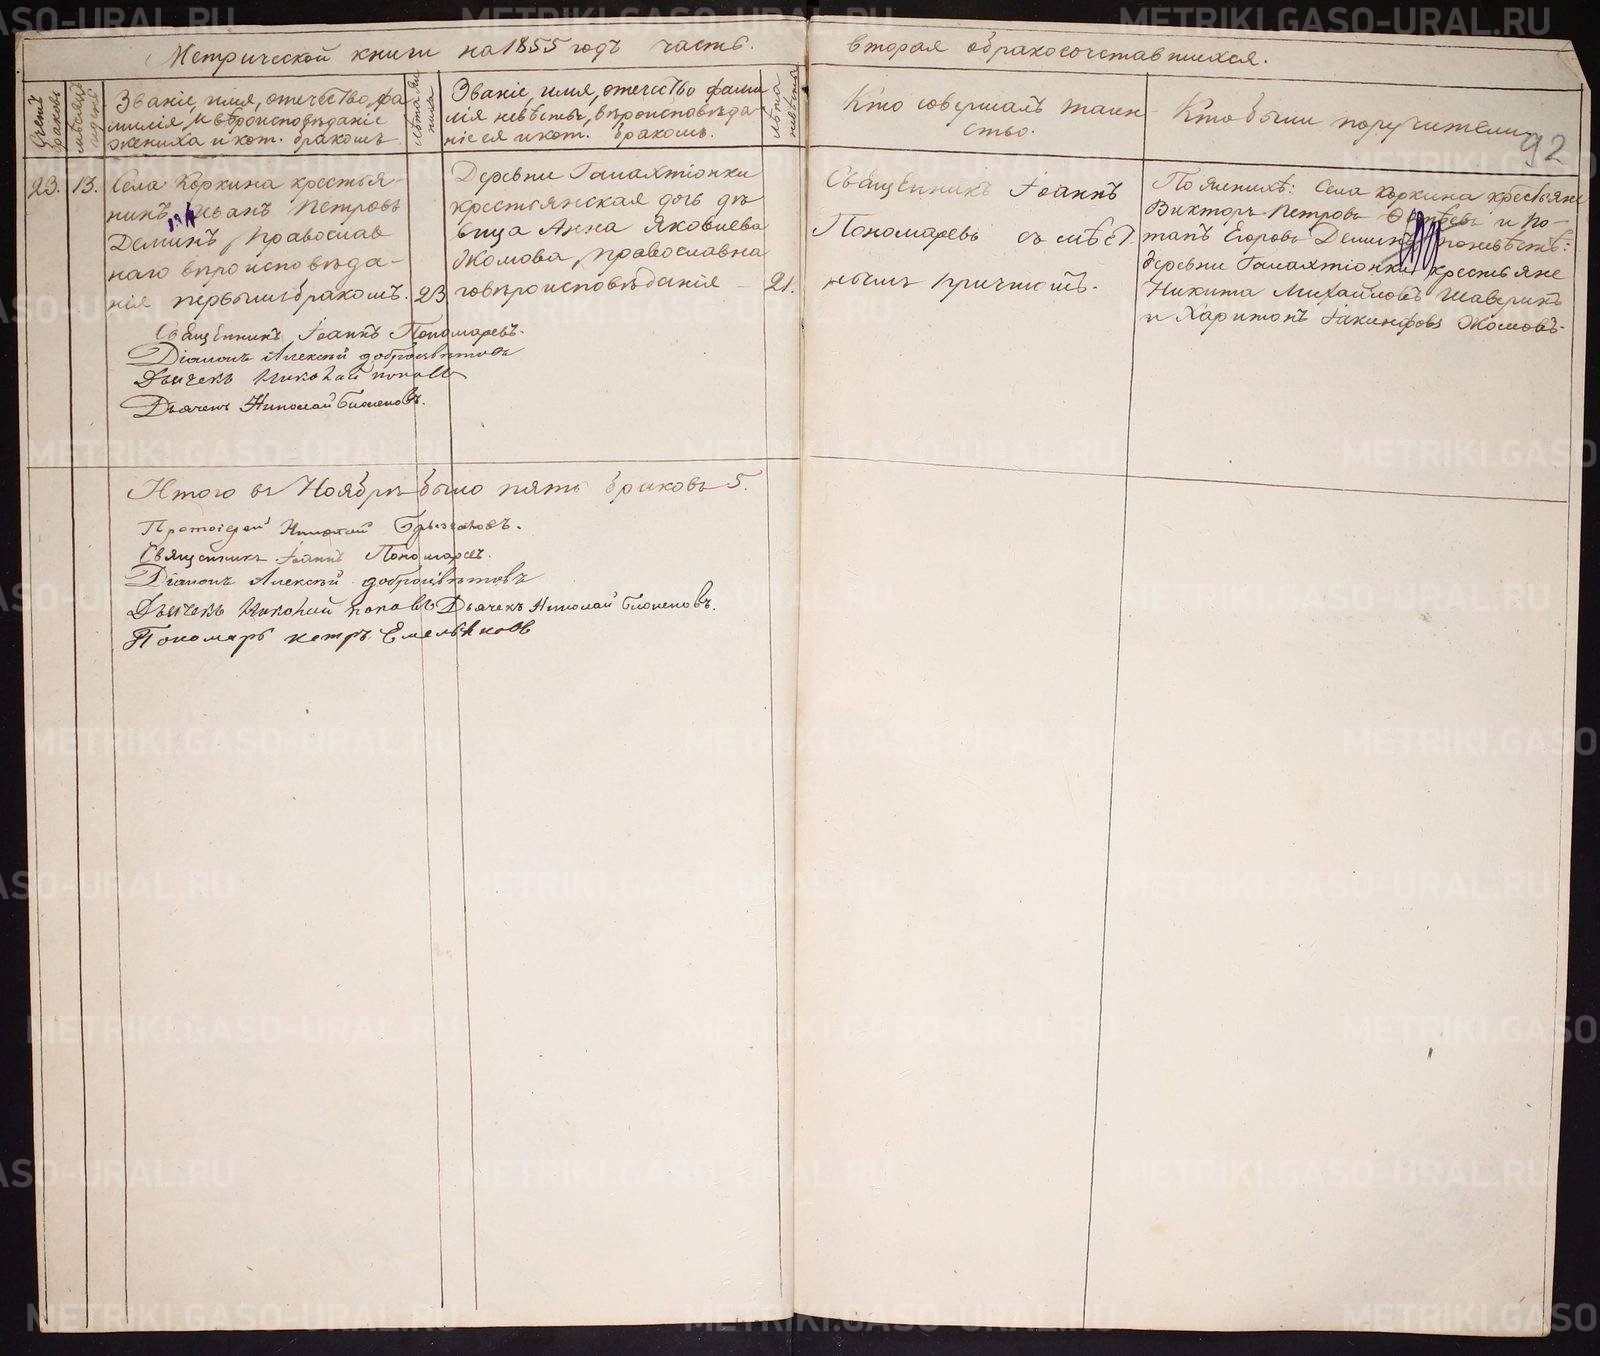 Метрической книги на 1855 годъ часть
вторая о бракосочетавшихся.
Счетъ браковъ
Званіе, имя, отечество, фа-
милія, и вѣроисповѣданіе
жениха и кот. бракомъ
Лѣта жениха
Званіе, имя, отечество фами
лія невѣсты, вѣроисповѣда-
ніе ея и кот. бракомъ.
Лѣта невѣсты
Кто совершалъ таин-
ство.
Кто были поручители
92
23. 13.
Села Коркина крестья-
нинъ Иванъ Петровъ
Деминъ, Православ
наго вѣроисповѣда-
нія первымъ бракомъ. 23
Деревни Галахтіонки
крестьянская дочь дѣ
вица Анна Яковлева
Жомова, православна
го вѣроисповѣданія 21.
Священникъ Іоаннъ
Пономаревъ съ мѣст
нымъ причтомъ.
По женихѣ: Села Коркина крестьяне
Викторъ Петровъ и По-
тапъ Егоровъ Деминъ, по невѣстѣ:
деревни Галахтіонки крестьяне
Никита Михайловъ Шаверинъ
и Харитонъ Іакинфовъ Жомовъ.
Священникъ Іоаннъ Пономаревъ.
Діаконъ Алексѣй Добросвѣтовъ
Дьячекъ Николай Поповъ
Дьячекъ Николай
Итого въ Ноябрѣ было пять браковъ 5.
Протоіерей Николай
Священникъ Іоаннъ Пономаревъ.
Діаконъ Алексѣй Добросвѣтовъ
Дьячекъ Николай Поповъ Дьячекъ Николай
Пономарь петръ Емельяновъ
METRIKI.GASO-URAL.RU